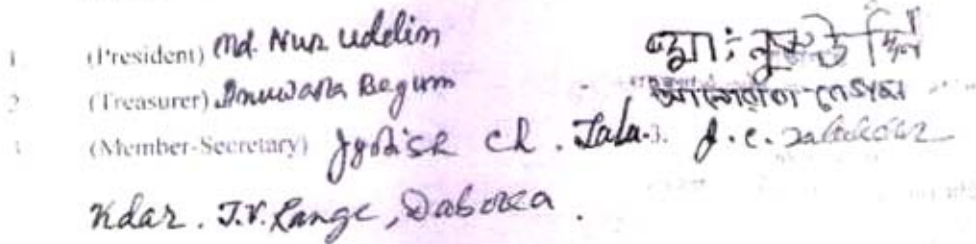 1. (President) Md. Nur Uddin মোঃ নুর উদ্দিন
2. (Treasurer) Anuwara Begum আনোৱাৰা বেগম
3. (Member-Secretary) Jyotish Ch. Talu- 3. J. C. Talukdar
Kdar. T.V. Range, Daboka.